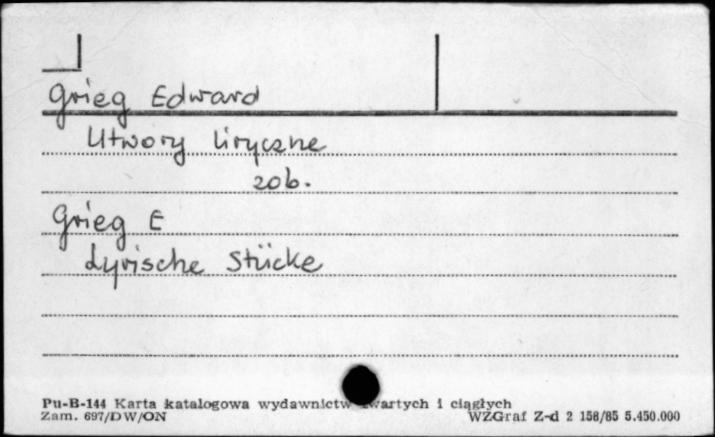 Grieg Edward
Utwory liryczne
zob.
Grieg E
Lyrische Stücke
Pu-B-144 Karta katalogowa wydawnictw zwartych i ciągłych
Zam. 697/DW/ON WZGraf Z-d 2 158/85 5.450.000